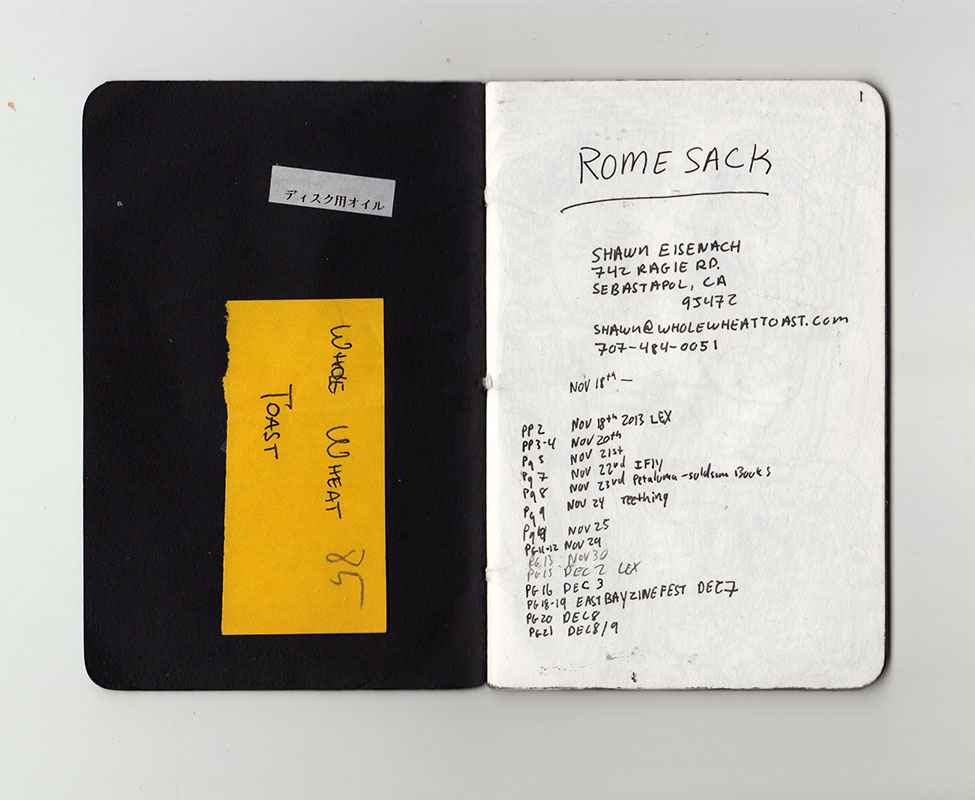 ディスク用オイル
WHOLE WHEAT 85
TOAST
1
ROME SACK
SHAWN EISENACH
742 RAGLE RD.
SEBASTAPOL, CA
95472
SHAWN@WHOLEWHEATTOAST.COM
707-484-0051
NOV 18th —
PP 2 NOV 18th 2013 LEX
PP3-4 NOV 20th
Pg 5 NOV 21st
Pg 7 NOV 22nd IFly
Pg 8 NOV 23rd Petaluma - Books
Pg 9 NOV 24 Teething
Pg NOV 25
PG11-12 NOV 29
PG 13 NOV 30
PG15 DEC 2 LEX
PG 16 DEC 3
PG18-19 EAST BAY ZINE FEST DEC 7
PG20 DEC 8
PG21 DEC 8/9